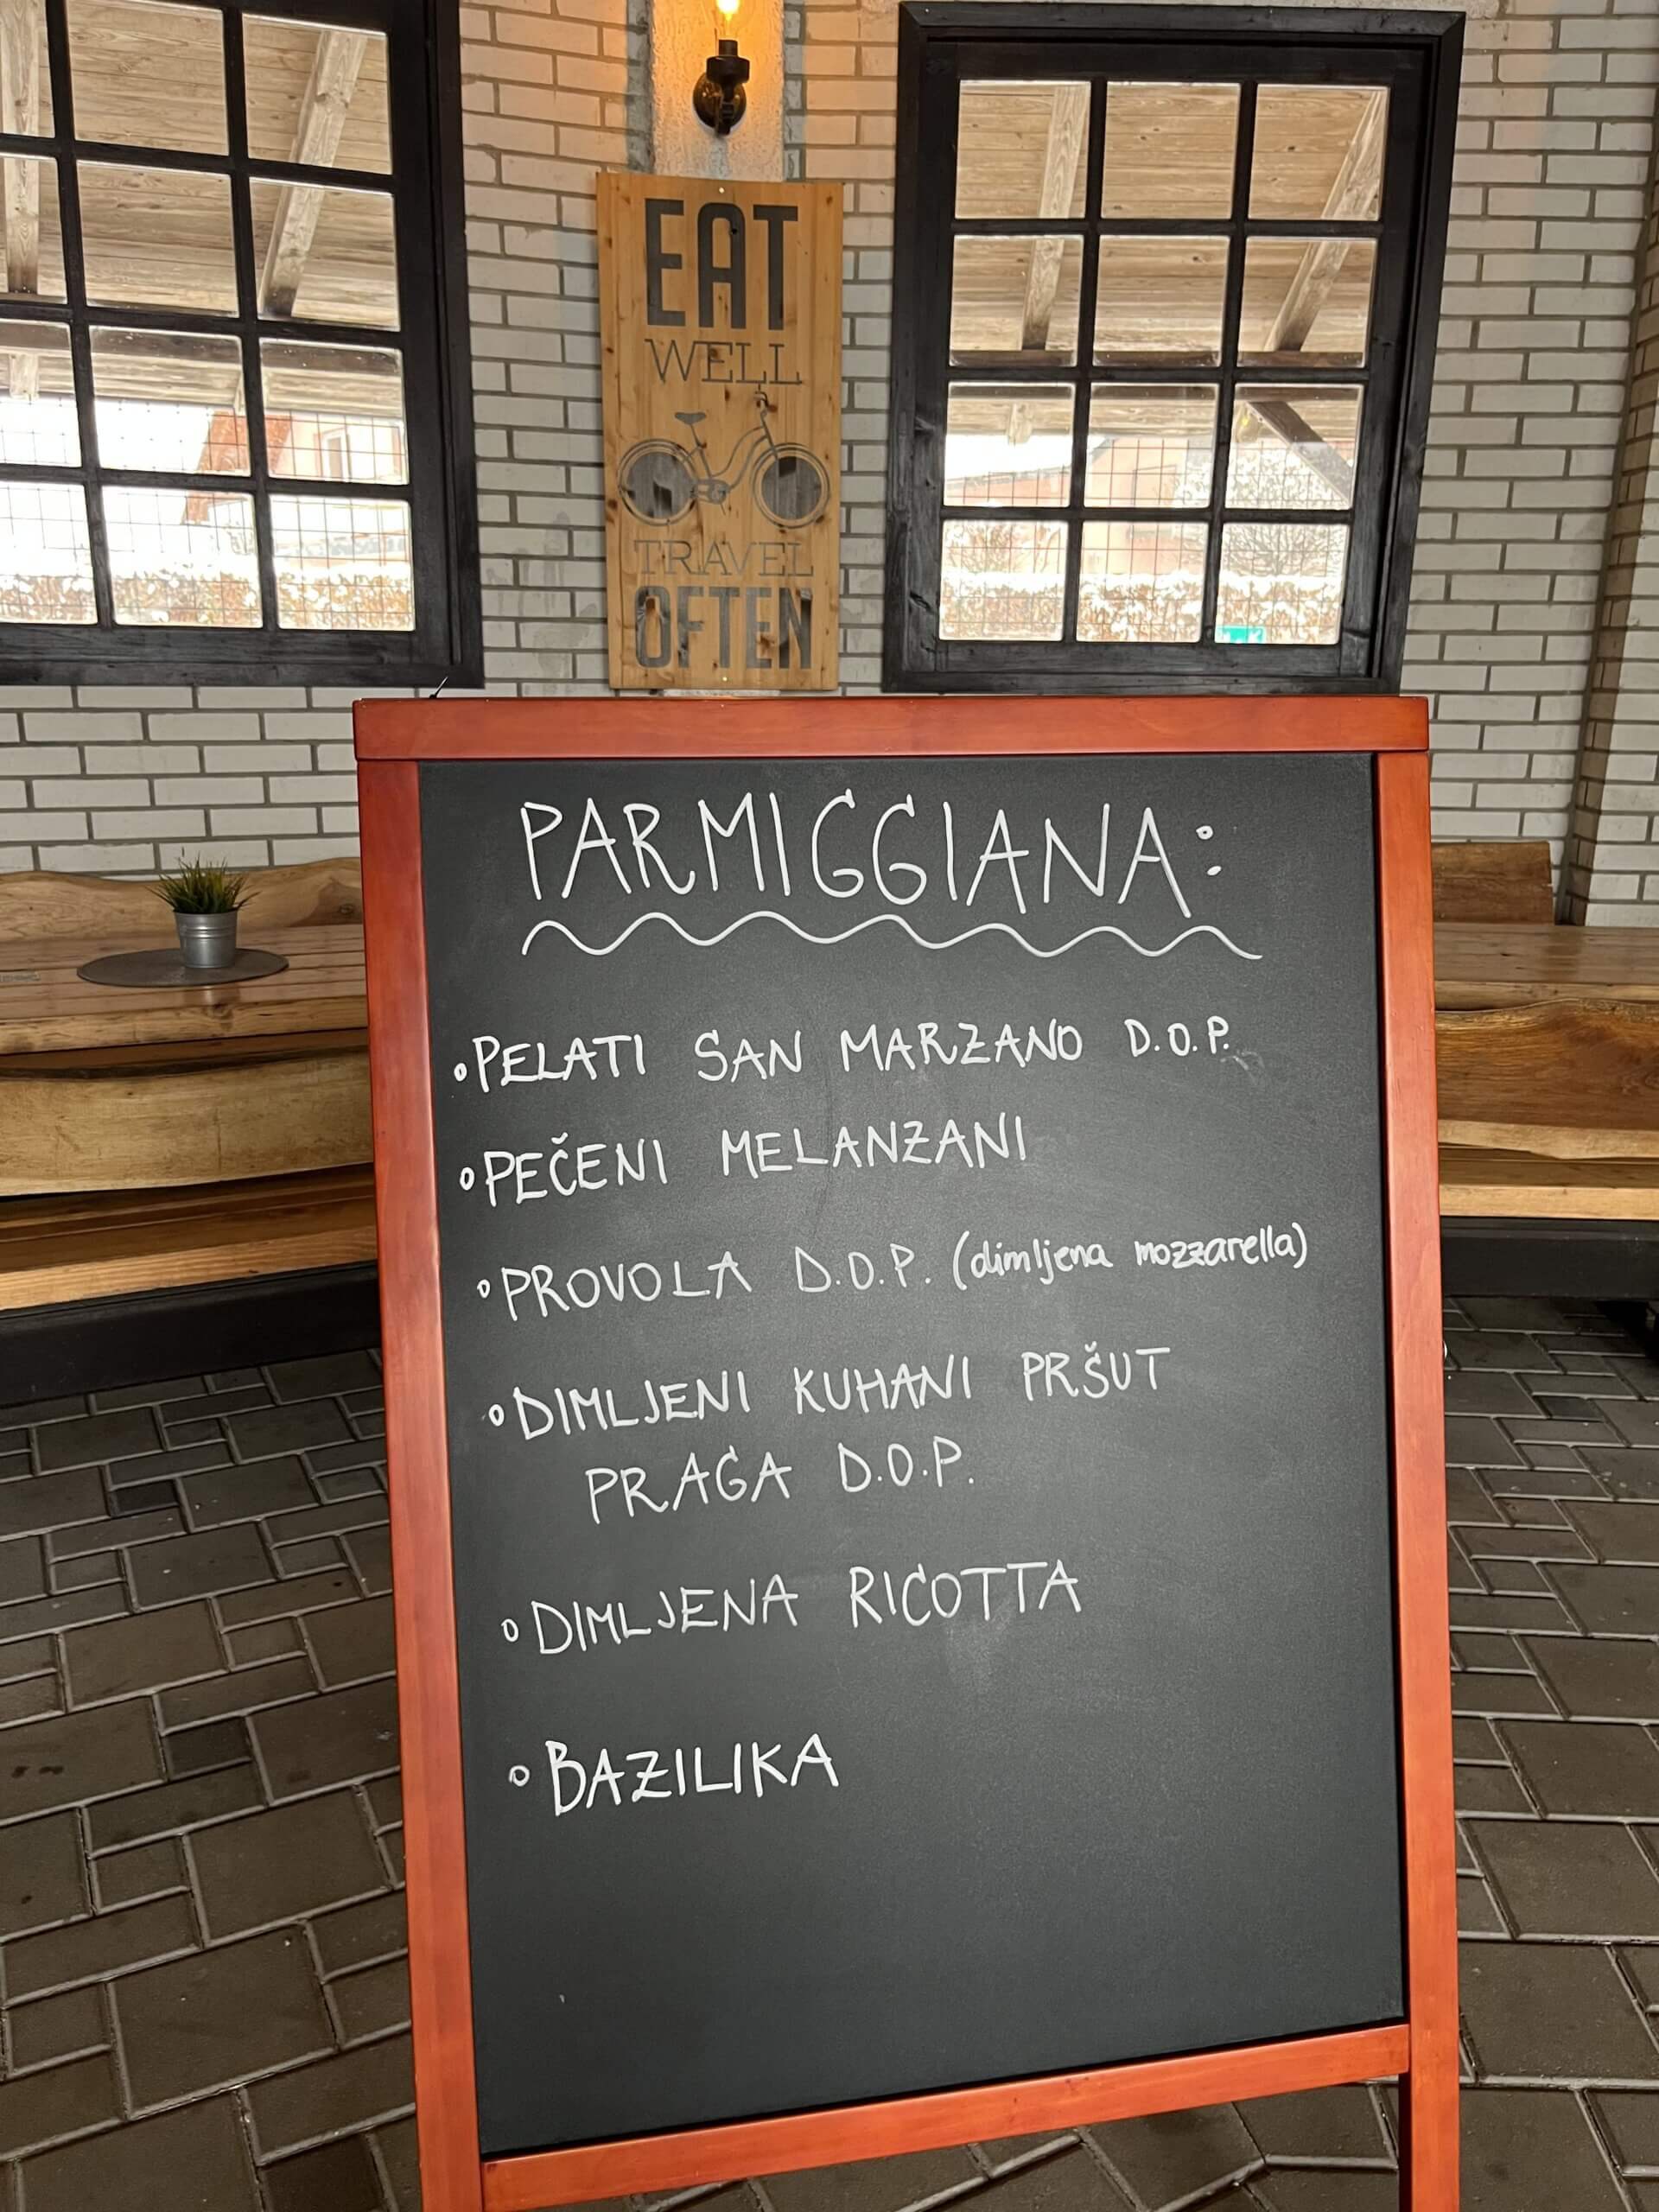 EAT
WELL
TRAVEL
OFTEN
PARMIGGIANA:
PELATI SAN MARZANO D.O.P.
PEČENI MELANZANI
PROVOLA D.O.P. (dimljena mozzarella)
DIMLJENI KUHANI PRŠUT
PRAGA D.O.P.
DIMLJENA RICOTTA
BAZILIKA